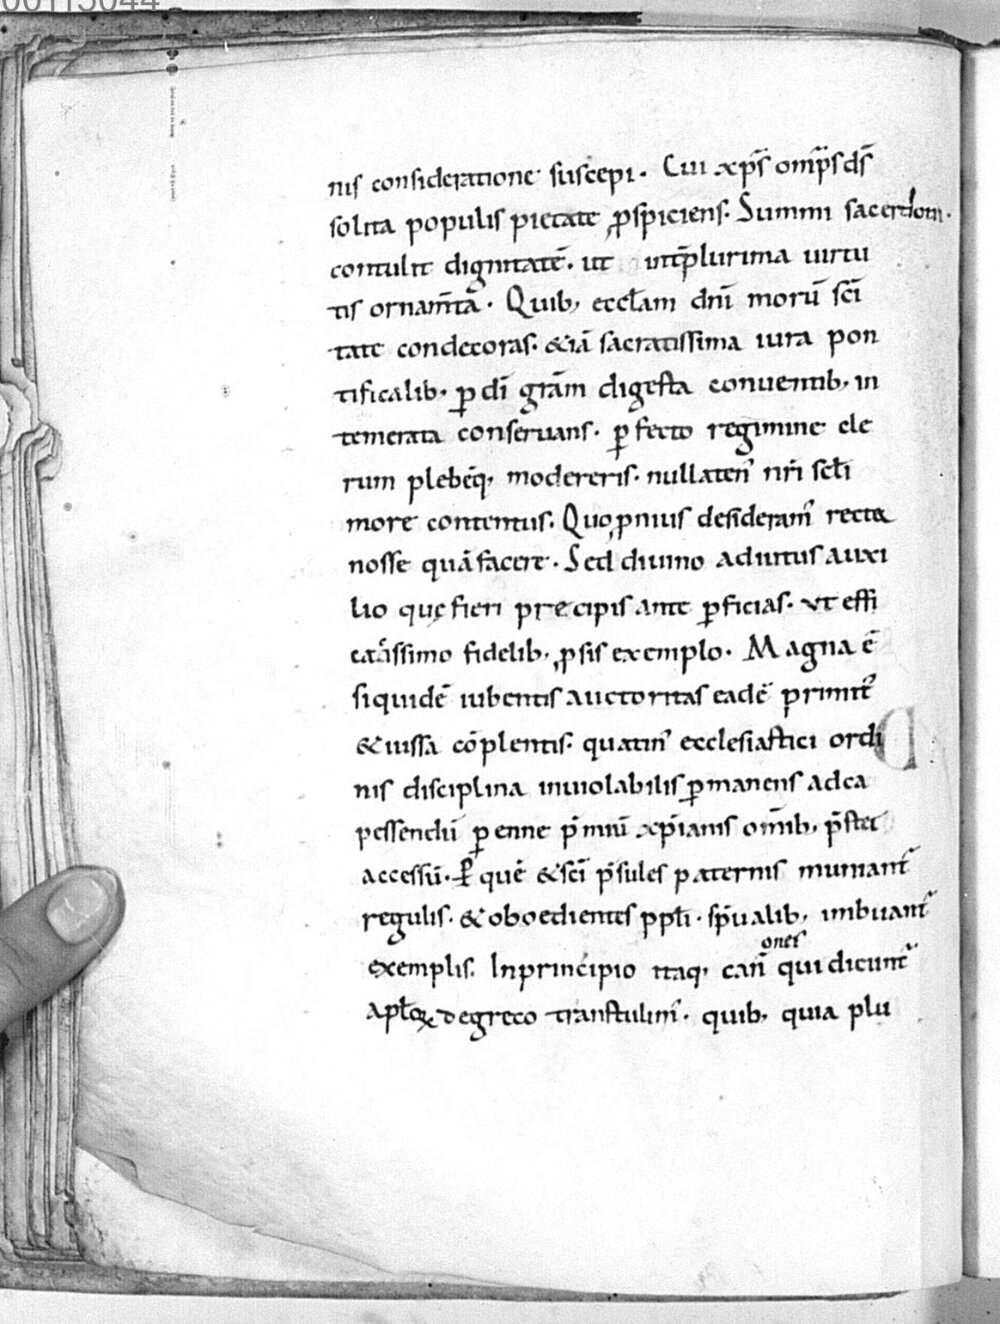 nis consideratione suscepi. Cui xp̄s om̄ps ds̄
solita populis pietate ꝓspiciens. Summi sacerdotii.
contulit dignitatē. ut int̄ plurima uirtu
tis ornam̄ta. Quib; eccl̄am dn̄i morū sc̄i
tate condecoras. &iā sacratissima iura pon
tificalib; ꝑ dī grām digesta conuentib; in
temerata conseruans. ꝑfecto regimine cle
rum plebēq; modereris. nullaten' nr̄i sc̄li
more contentus. Quo ꝓnius desideram' recta
nosse quā facere. Sed diuino adiutus auxi
lio quę fieri precipis ante ꝑficias. ut effi
catissimo fidelib; ꝓsis exemplo. Magna ē
siquidē iubentis auctoritas eadē primit'
& iussa cōplentis. quatin' ecclesiastici ordi
nis disciplina inuiolabilis ꝑmanens ad ca
pessendū ꝑenne p̄miū xp̄ianis om̄ib; p̄stet
accessū. ꝑ quē & sc̄i p̄sules paternis muniant'
regulis. & oboedientes ppl̄i. sp̄ualib; imbuant'
exemplis. In principio itaq; can̄
ones
qui dicunt'
apl̄oꝝ de greco transtulim'. quib; quia plu